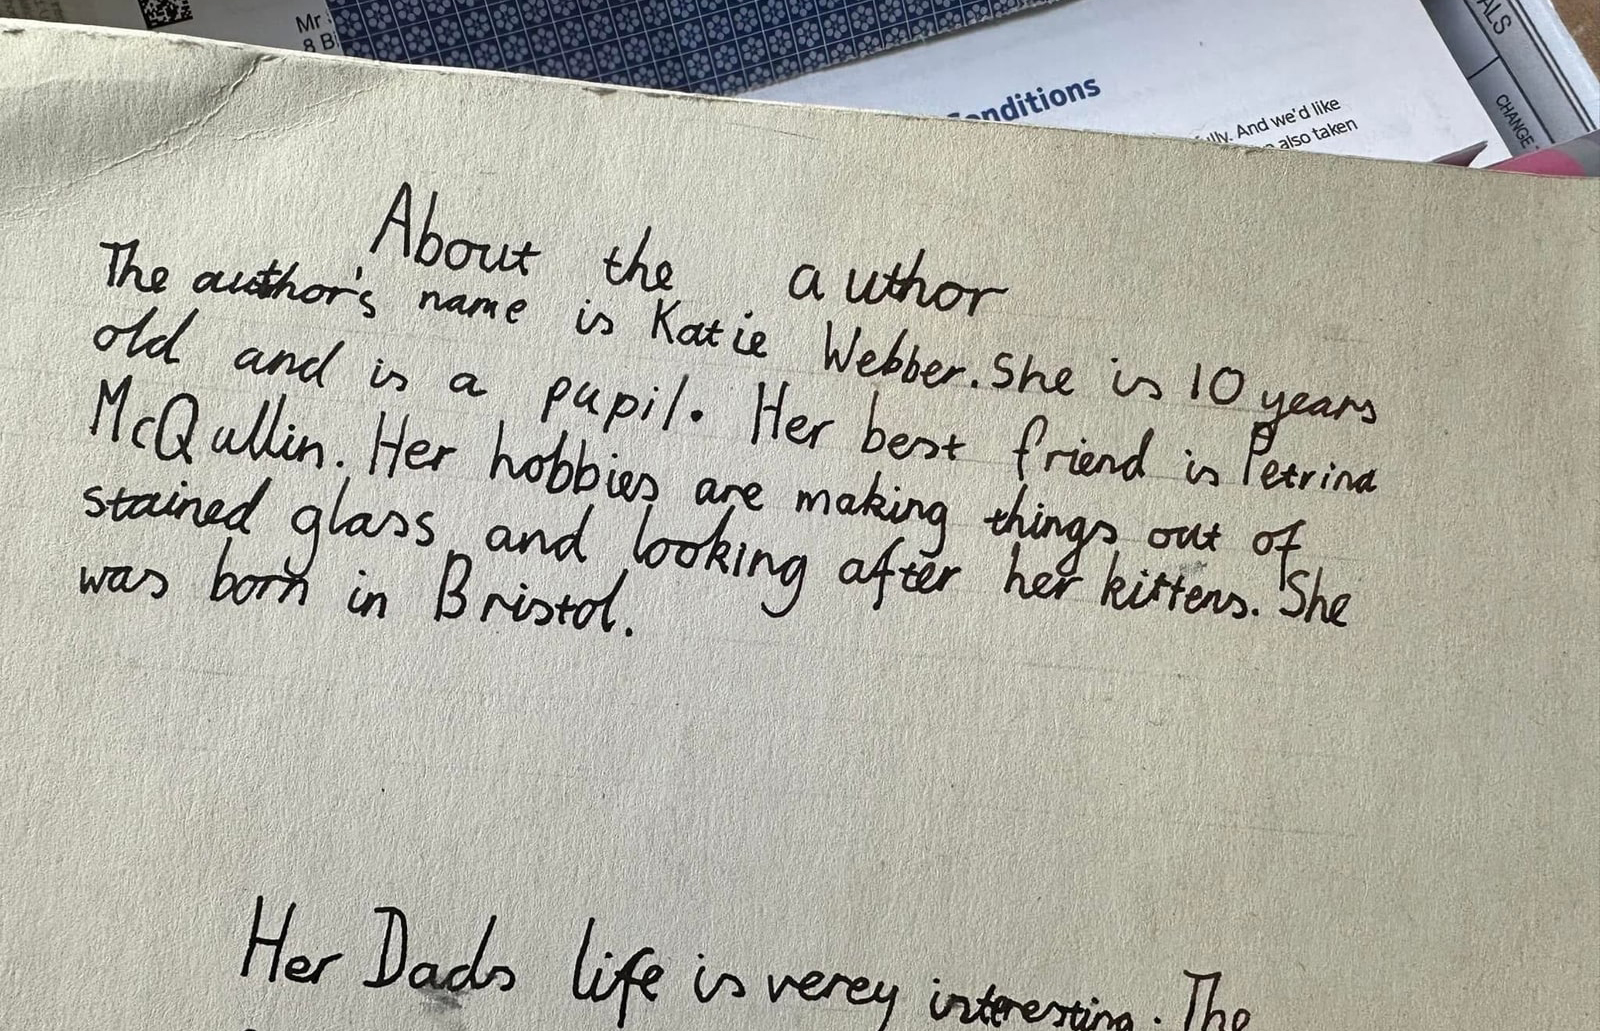 Mr
8 B
Conditions
ully. And we'd like
also taken
ALS
CHANGE
About the author
The author's name is Katie Webber. She is 10 years
old and is a pupil. Her best friend is Petrina
McQullin. Her hobbies are making things out of
stained glass and looking after her kittens. She
was born in Bristol.
Her Dads life is verey interesting. The